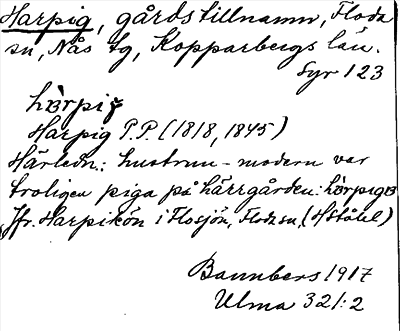 Harpig, gårdstillnamn, Floda
sn, Nås tg, Kopparbergs län.
Syr 123
hàrpig
Harpig P.P. (1818, 1845)
Härledn.: hustrun-modern var
troligen piga på härrgården: hàrpiga
Jfr. Harpikôn i Flosjön, Floda sn, (HStåhl)
Bannbers 1917
Ulma 321:2